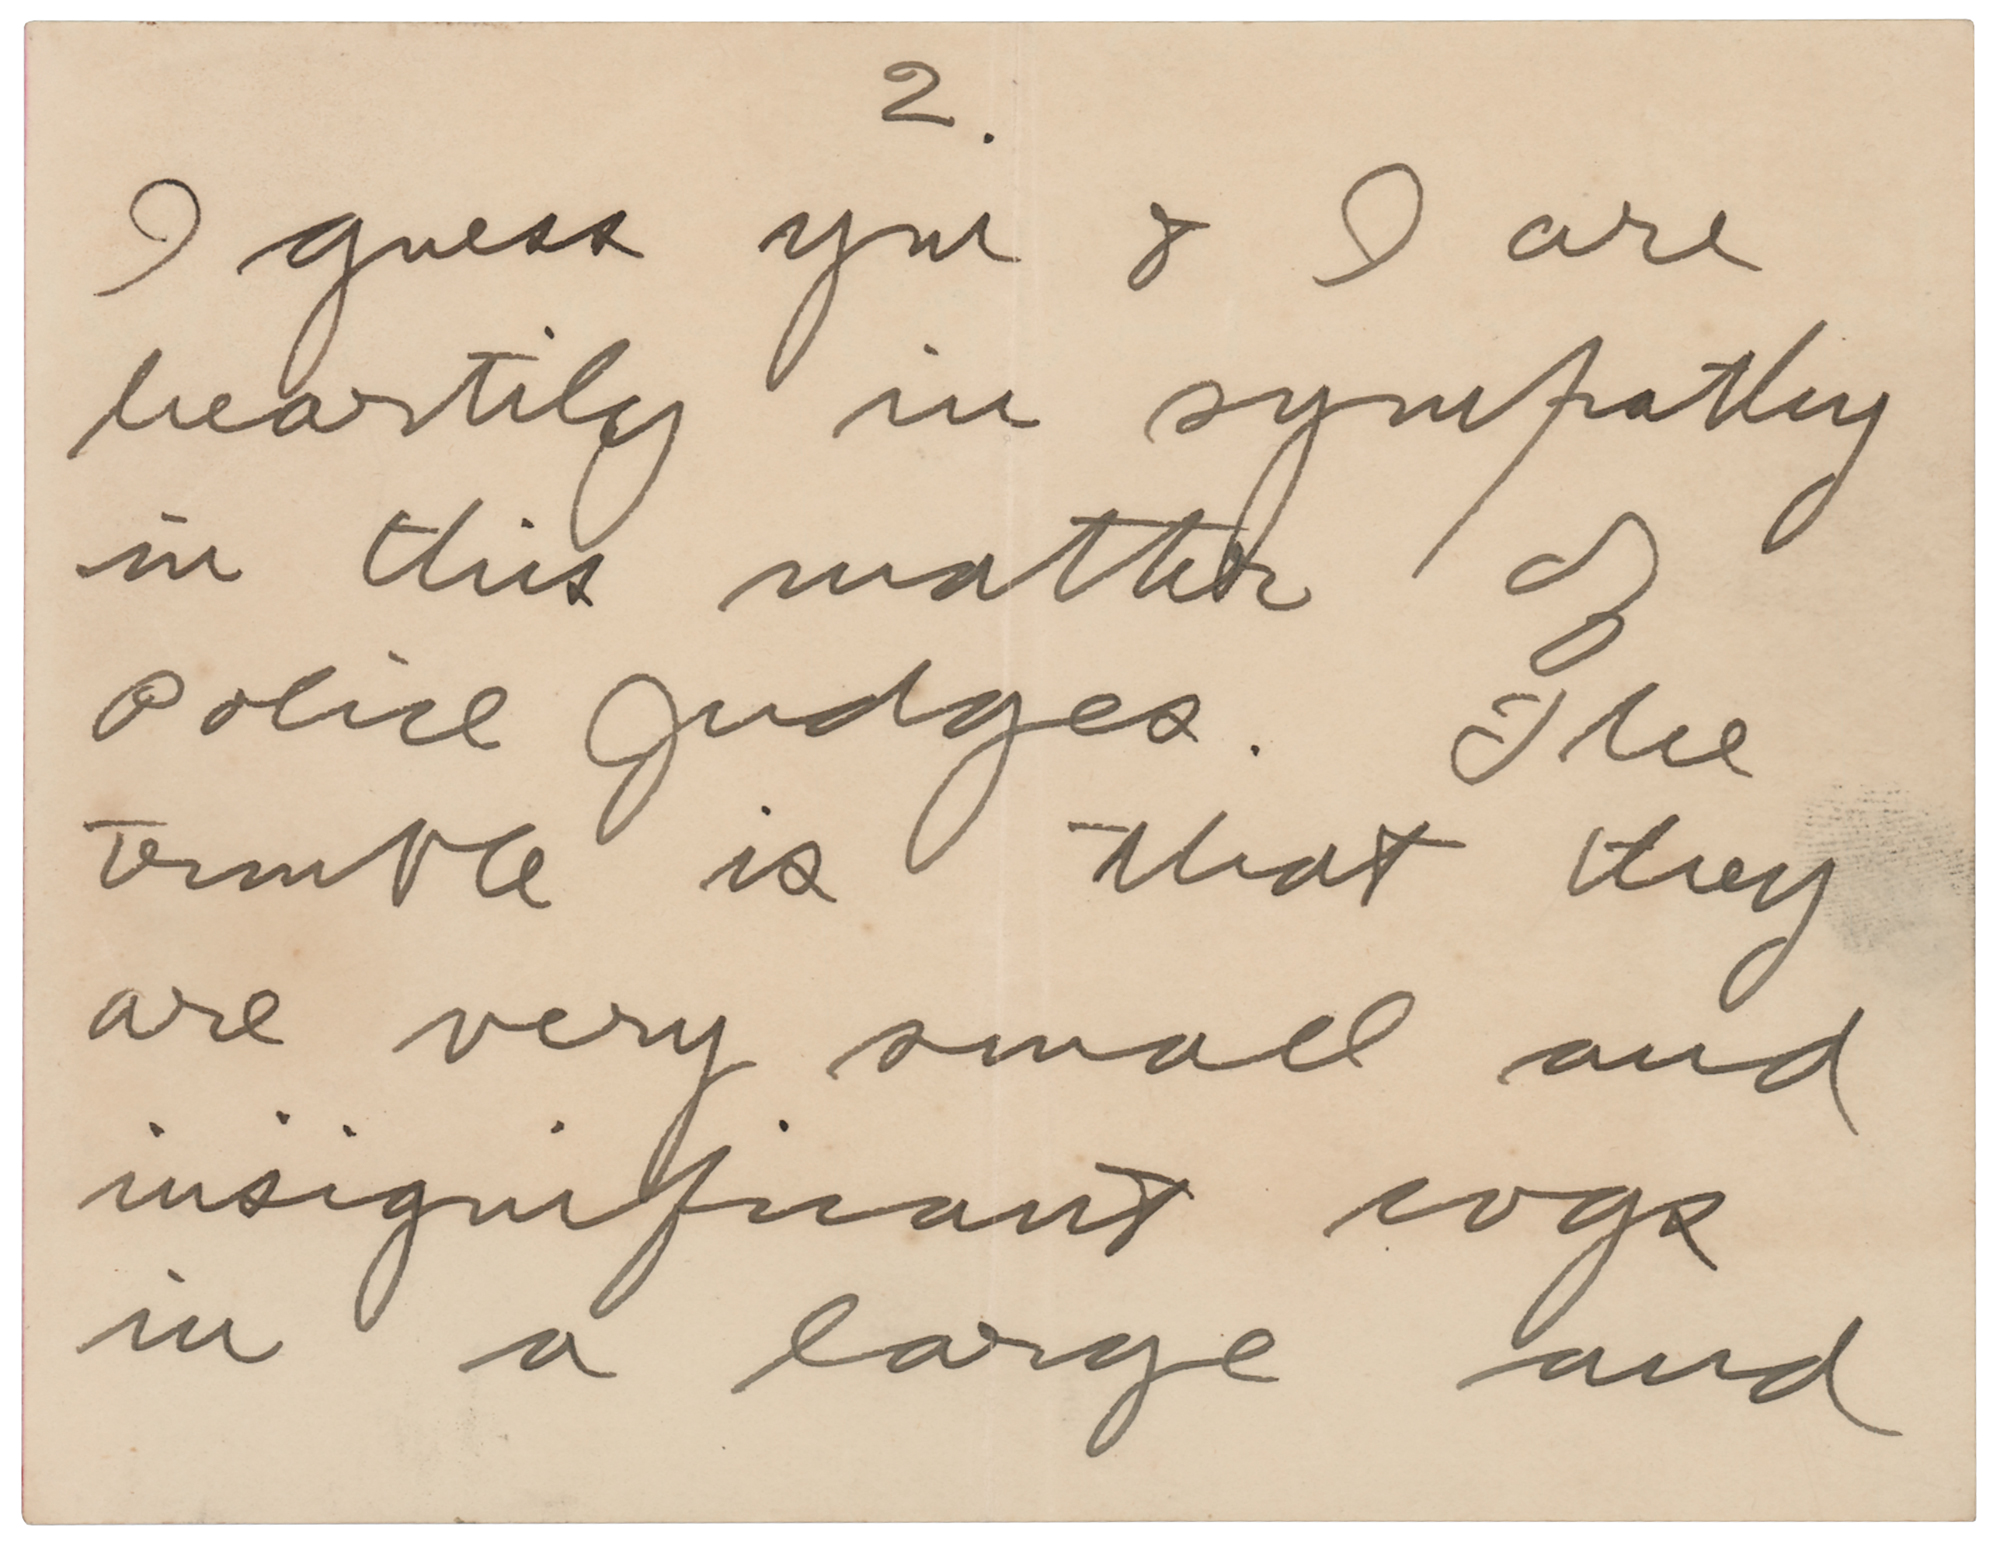 2.
I guess you & I are
heartily in sympathy
in this matter of
Police Judges. The
trouble is that they
are very small and
insignificant cogs
in a large and